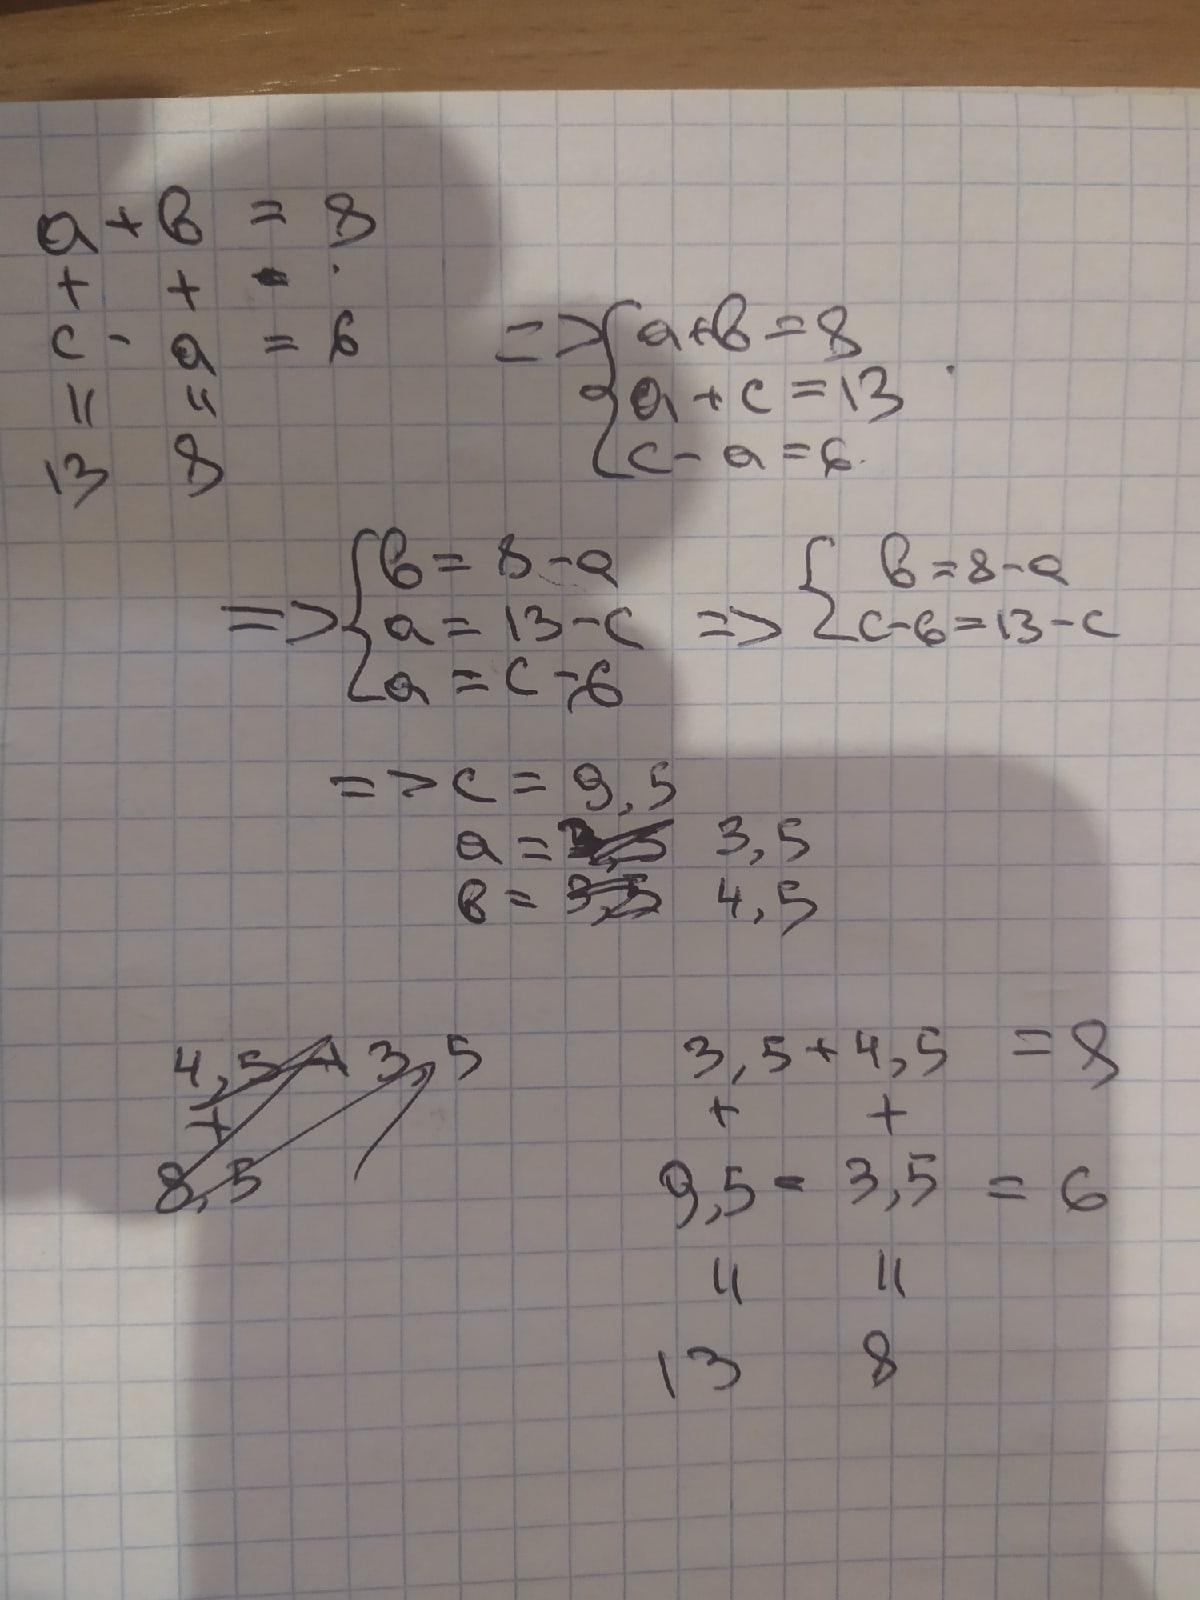 a + в = 8
+ + - .
c - a = 6
=> { a+в=8
a+c=13
c-a=6.
11 11
13 8
=> { в = 8-a
a = 13-c
a = c-6
=> { в=8-a
c-6=13-c
=> c = 9,5
a = 3,5
в = 4,5
4,5 + 3,5
+
8,5
3,5+4,5 = 8
+ +
9,5 - 3,5 = 6
11 11
13 8